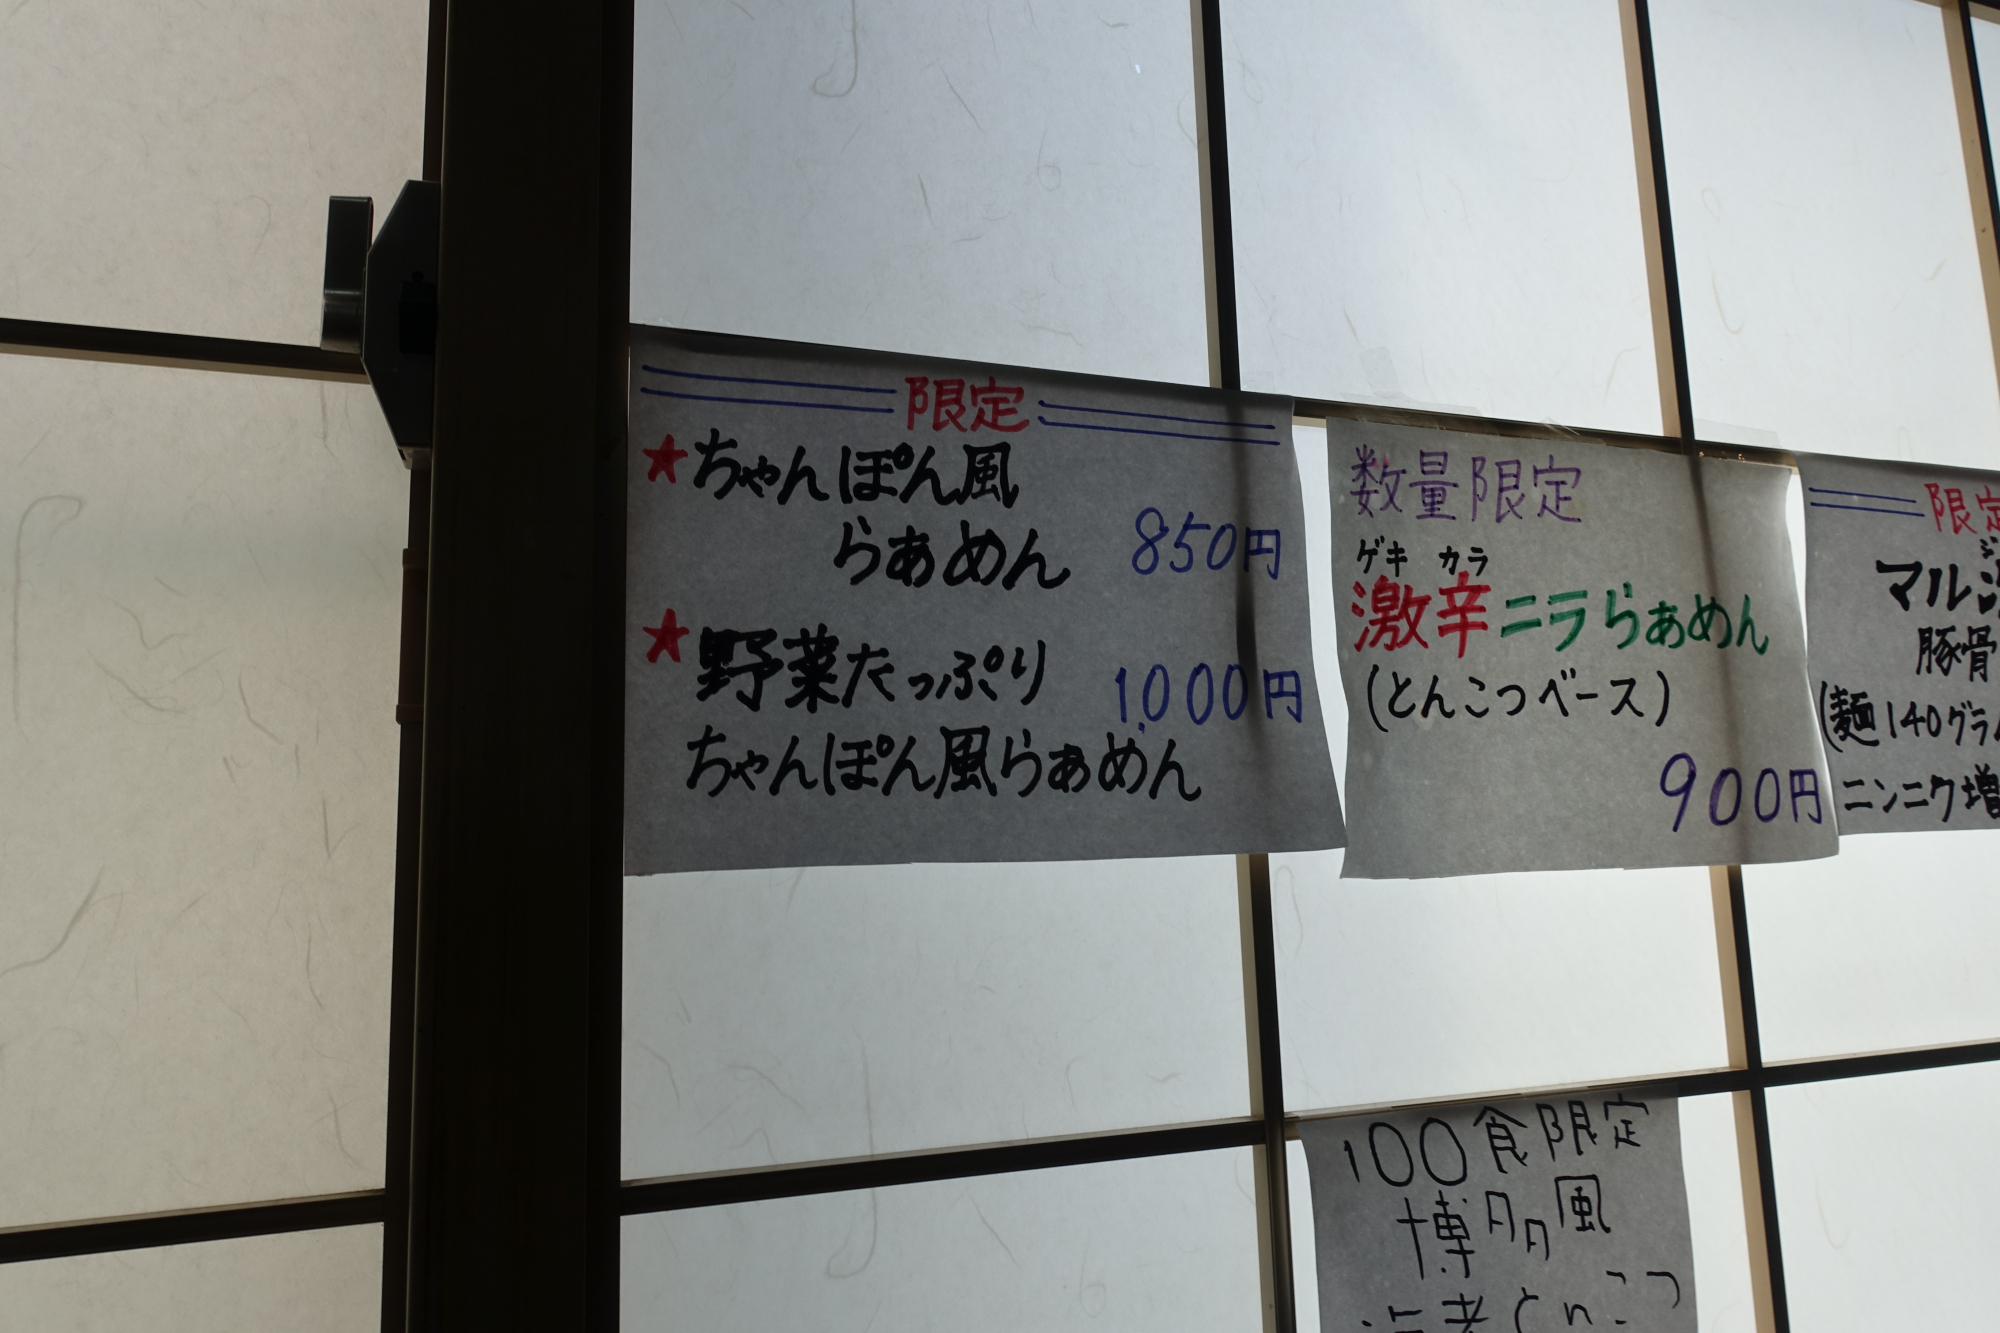 限定
★ちゃんぽん風
らぁめん 850円
★野菜たっぷり 1,000円
ちゃんぽん風らぁめん
数量限定
ゲキ カラ
激辛ニラらぁめん
(とんこつベース)
900円
限定
マル
豚骨
(麺140グラ
ニンニク増
100食限定
博多風
とんこつ